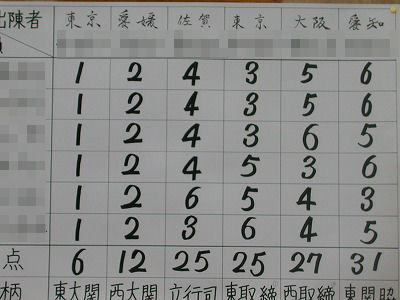 出陳者 東京 愛媛 佐賀 東京 大阪 愛知
1 2 4 3 5 6
1 2 4 3 5 6
1 2 4 3 6 5
1 2 4 5 3 6
1 2 6 5 4 3
1 2 3 6 4 5
点 6 12 25 25 27 31
柄 東大関 西大関 立行司 東取締 西取締 東関脇